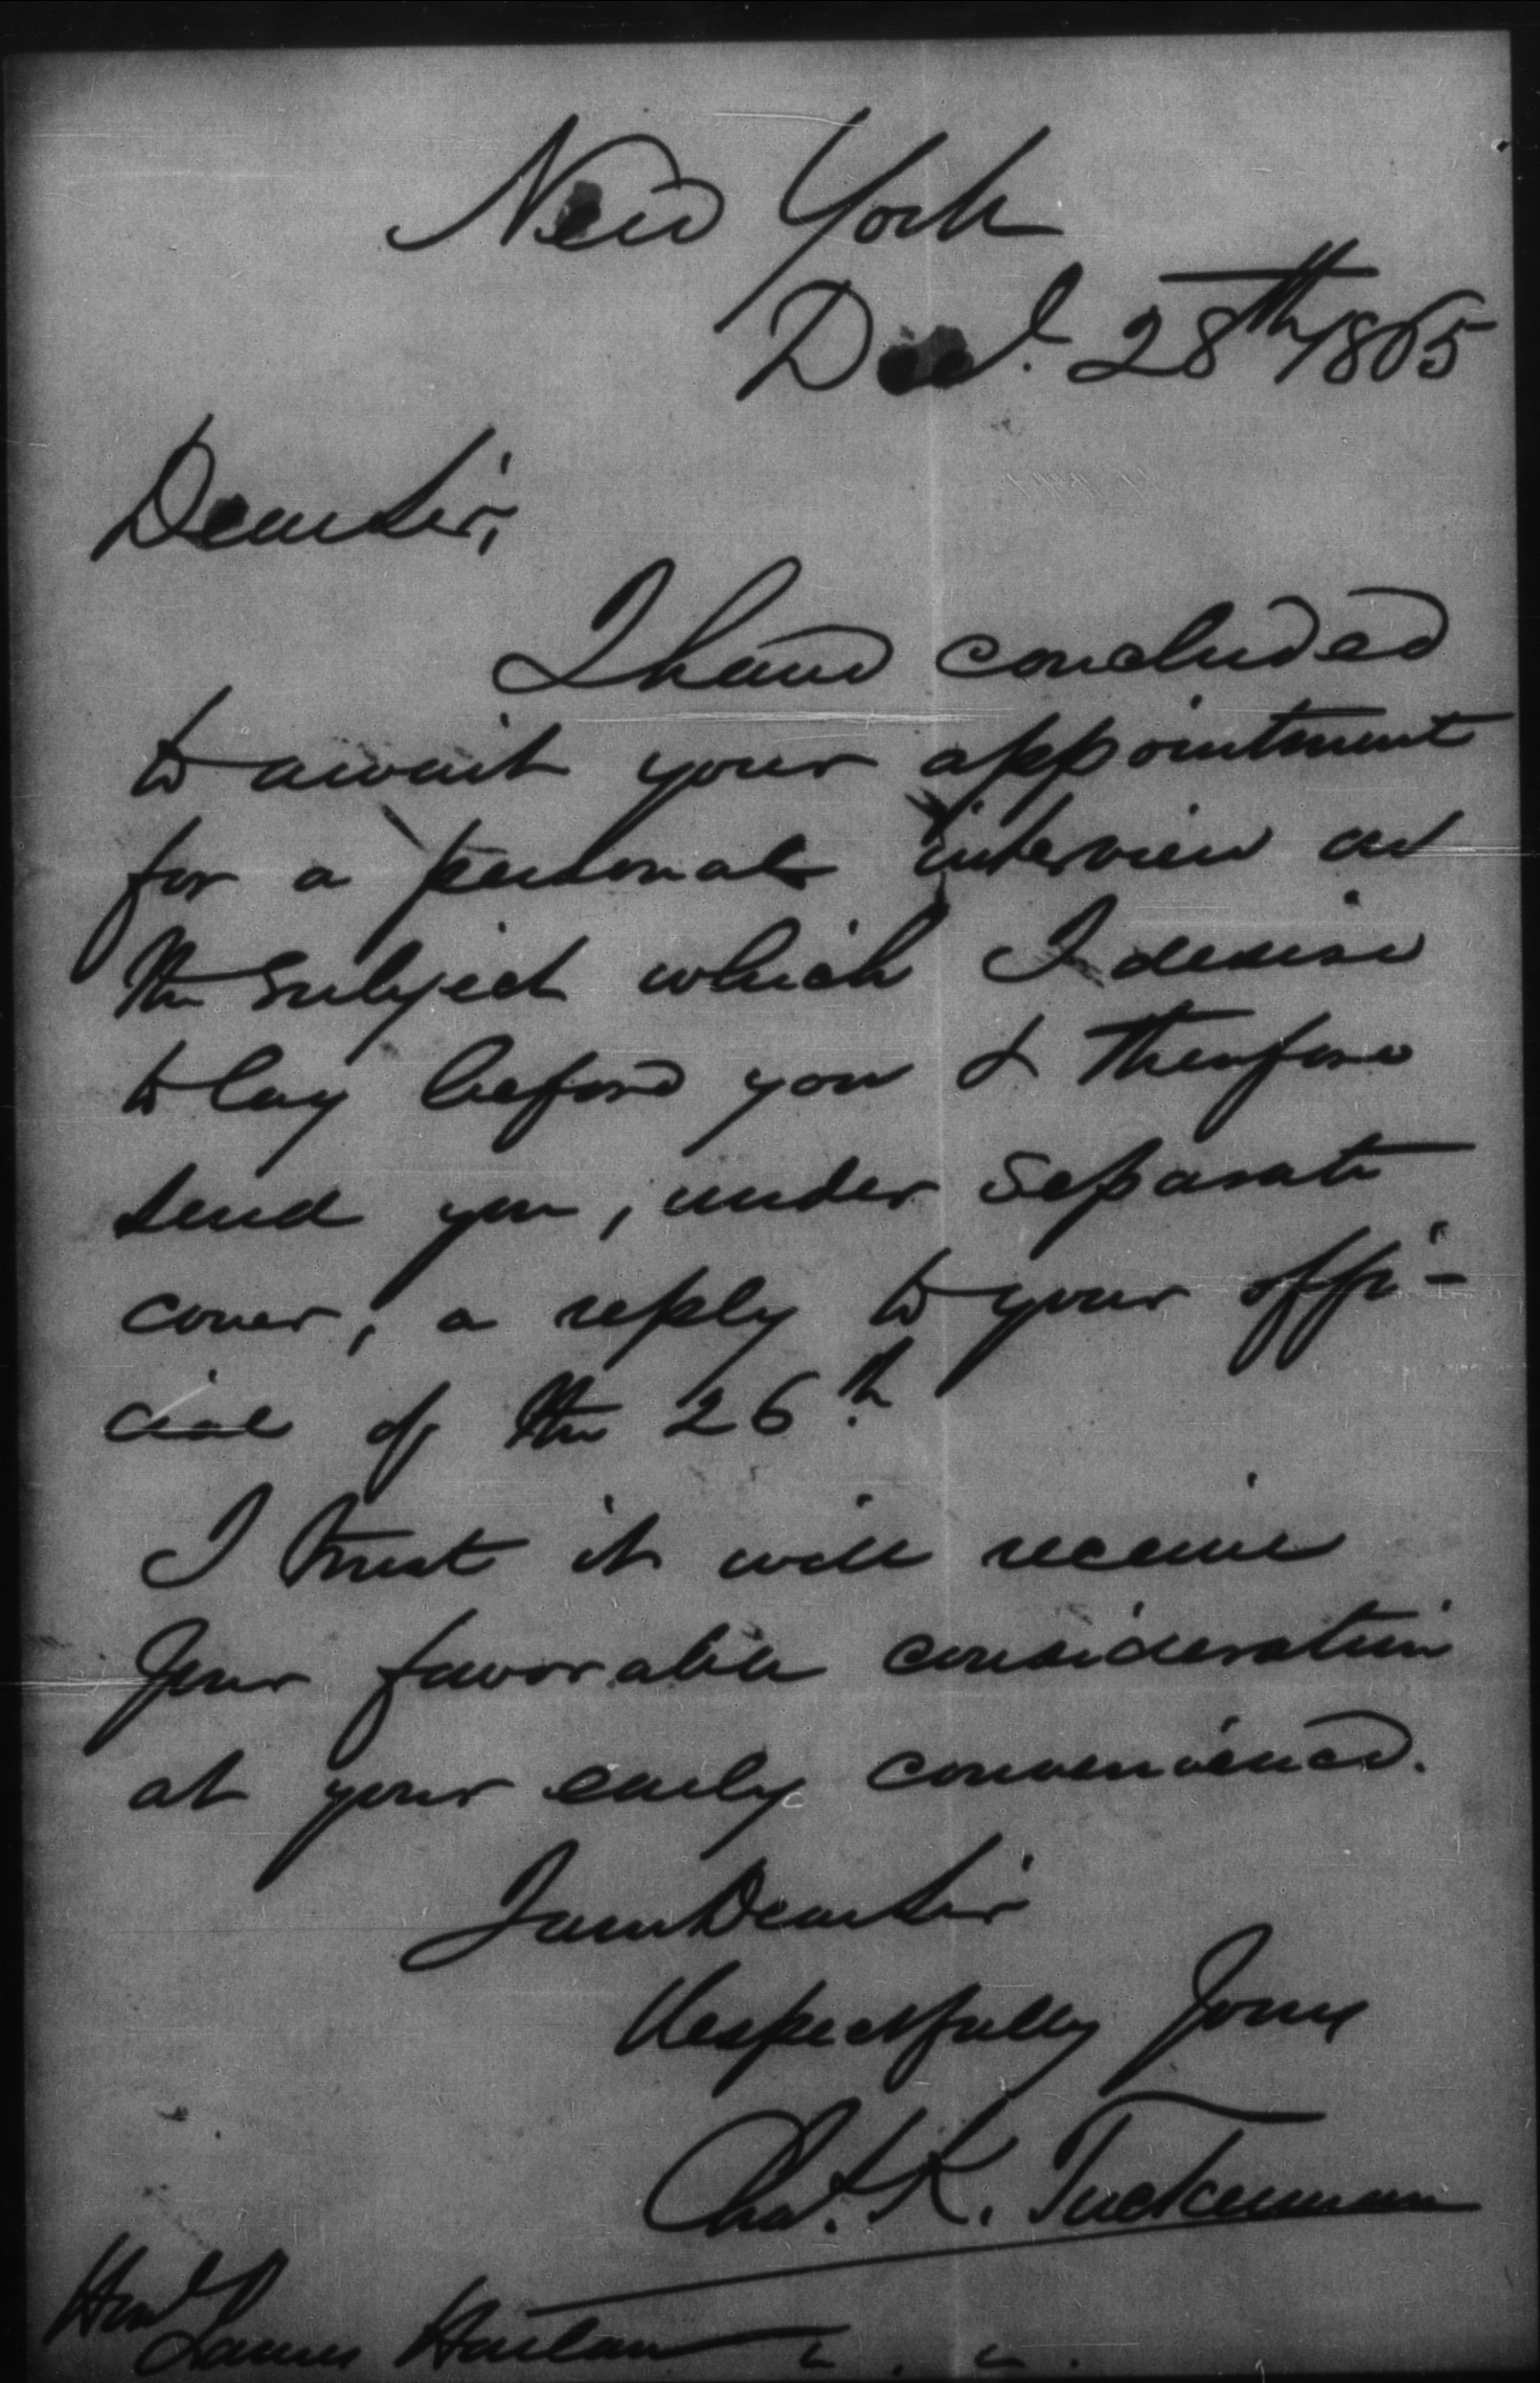 New York
Decr. 28th 1865
Dear Sir,
I have concluded
to await your appointment
for a personal interview on
the subject which I desire
to lay before you & therefore
send you, under separate
cover, a reply to your offi-
cial of the 26th
I trust it will receive
Your favorable consideration
at your early convenience.
I am Dear Sir
Respectfully Yours
Chas. K. Tuckerman
Honl
James Harlan